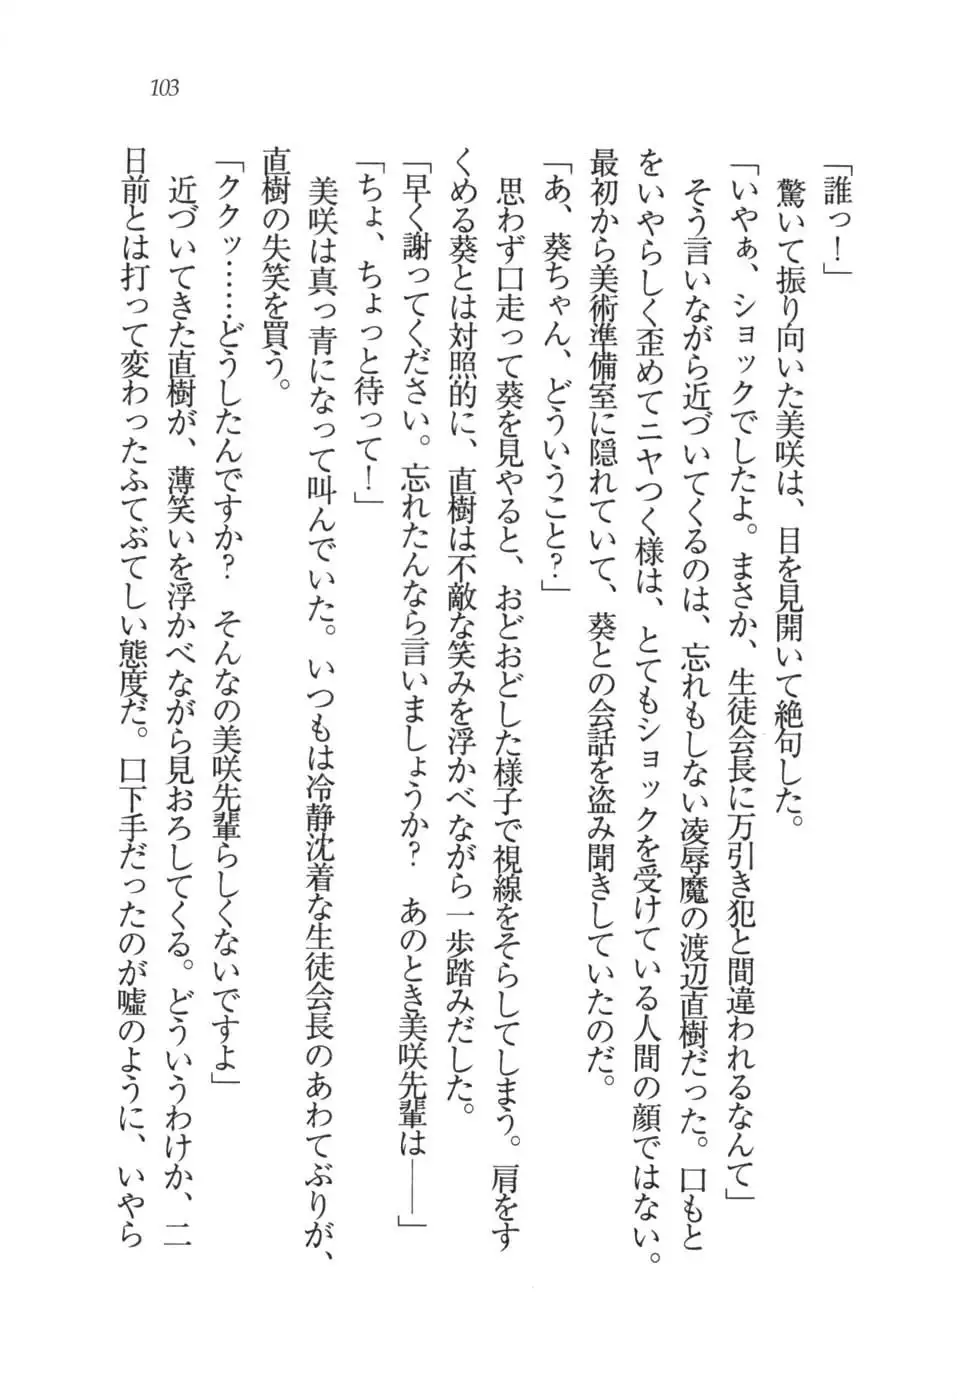 103
「誰っ！」
驚いて振り向いた美咲は、目を見開いて絶句した。
「いやぁ、ショックでしたよ。まさか、生徒会長に万引き犯と間違われるなんて」
そう言いながら近づいてくるのは、忘れもしない凌辱魔の渡辺直樹だった。口もと
をいやらしく歪めてニヤつく様は、とてもショックを受けている人間の顔ではない。
最初から美術準備室に隠れていて、葵との会話を盗み聞きしていたのだ。
「あ、葵ちゃん、どういうこと？」
思わず口走って葵を見やると、おどおどした様子で視線をそらしてしまう。肩をす
くめる葵とは対照的に、直樹は不敵な笑みを浮かべながら一歩踏みだした。
「早く謝ってください。忘れたんなら言いましょうか？　あのとき美咲先輩は――」
「ちょ、ちょっと待って！」
美咲は真っ青になって叫んでいた。いつもは冷静沈着な生徒会長のあわてぶりが、
直樹の失笑を買う。
「ククッ……どうしたんですか？　そんなの美咲先輩らしくないですよ」
近づいてきた直樹が、薄笑いを浮かべながら見おろしてくる。どういうわけか、二
日前とは打って変わったふてぶてしい態度だ。口下手だったのが嘘のように、いやら